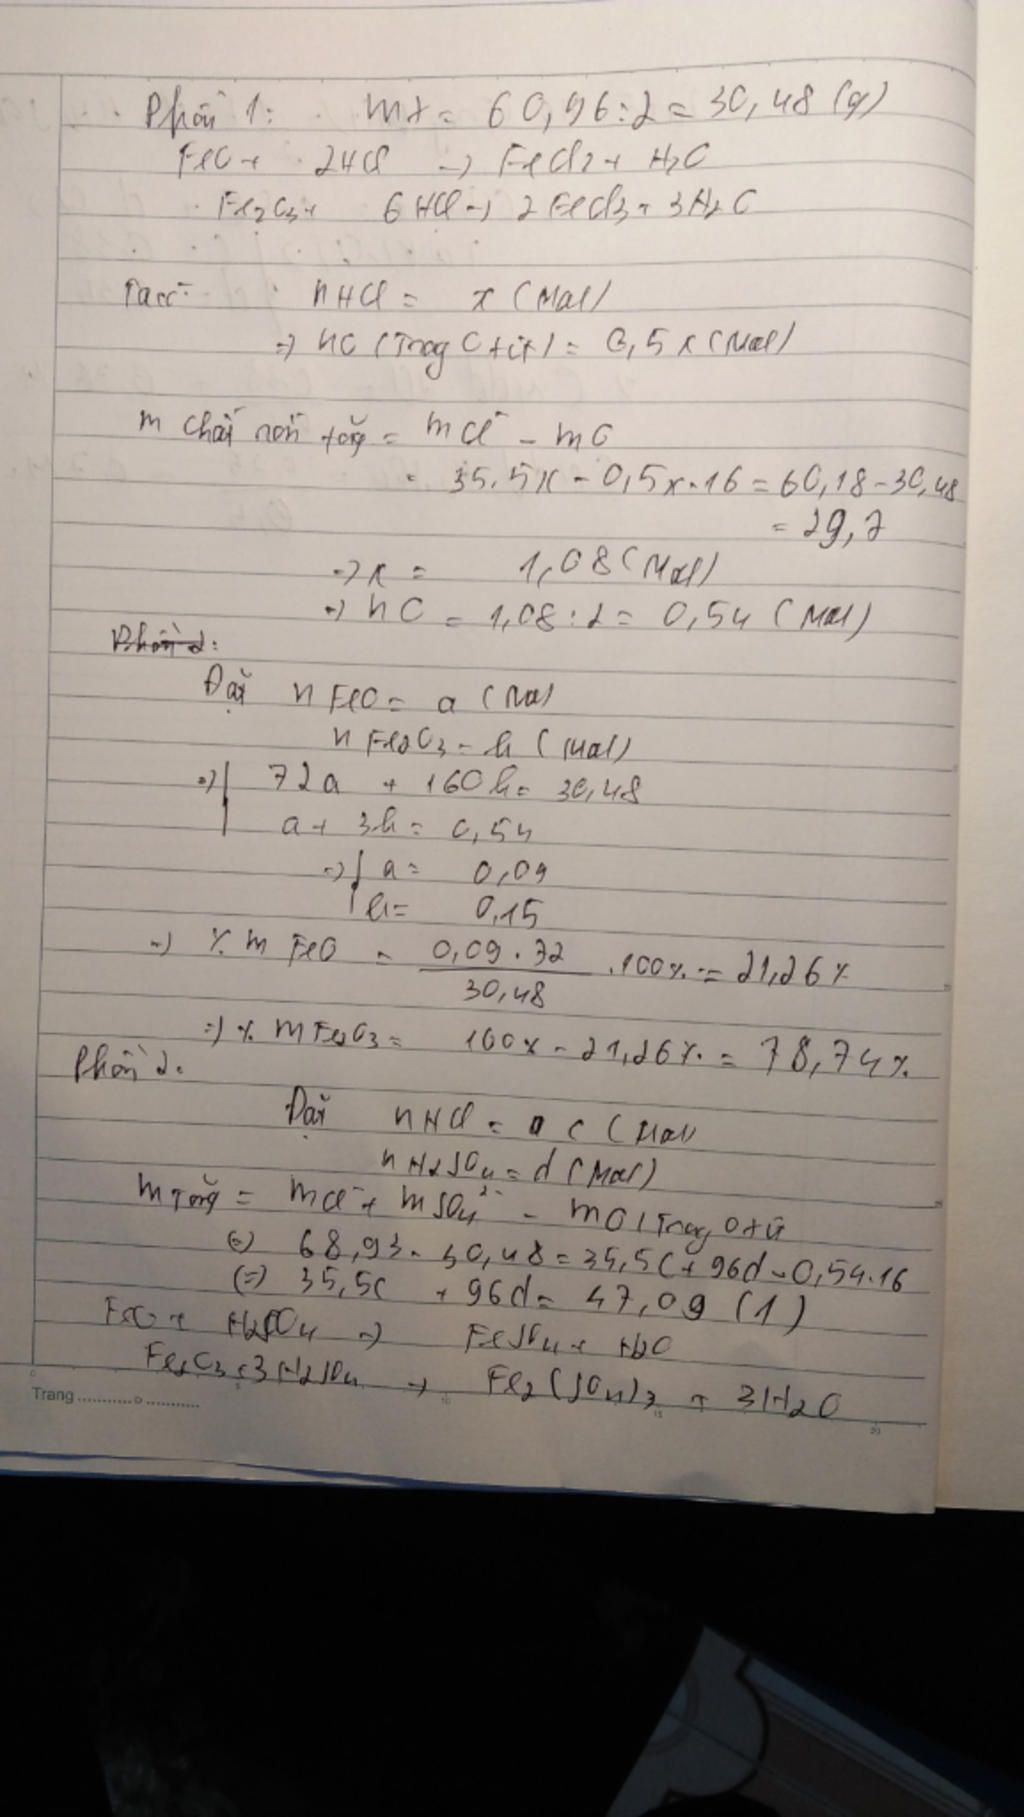 Phần 1: mX = 60,96:2 = 30,48 (g)
FeO + 2HCl → FeCl2 + H2O
Fe2O3 + 6HCl → 2FeCl3 + 3H2O
Ta có: nHCl = x (mol)
=> nO (Trong Oxit) = 0,5x (mol)
m chất rắn tăng = mCl⁻ - mO
= 35,5x - 0,5x.16 = 60,18 - 30,48
= 29,7
=> x = 1,08 (mol)
=> nO = 1,08:2 = 0,54 (mol)
Phần 2:
Đặt nFeO = a (mol)
nFe2O3 = b (mol)
=> 72a + 160b = 30,48
a + 3b = 0,54
=> a = 0,09
b = 0,15
=> % m FeO = 0,09.72/30,48 .100% = 21,26%
=> % mFe2O3 = 100% - 21,26% = 78,74%
Phần 2:
Đặt nHCl = c (mol)
nH2SO4 = d (mol)
m tăng = mCl⁻ + mSO4²⁻ - mO (Trong Oxit
(=) 68,93 - 30,48 = 35,5c + 96d - 0,54.16
(=) 35,5c + 96d = 47,09 (1)
FeO + H2SO4 → FeSO4 + H2O
Fe2O3 + 3H2SO4 → Fe2(SO4)3 + 3H2O
Trang